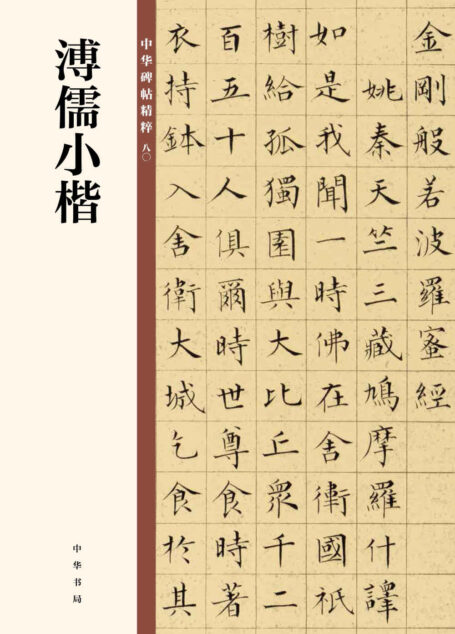 溥儒小楷
中华书局
中华碑帖精粹 八〇
金剛般若波羅蜜經
姚秦天竺三藏鳩摩羅什譯
如是我聞一時佛在舍衛國祇
樹給孤獨園與大比丘眾千二
百五十人俱爾時世尊食時著
衣持鉢入舍衛大城乞食於其